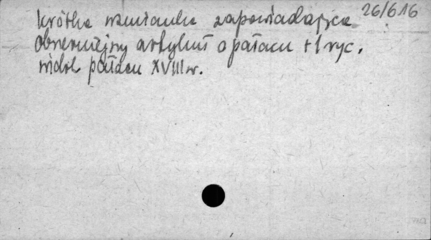 26/616
krótka wzmianka zapowiadająca
obszerniejszy artykuł o pałacu + 1 ryc.
widok pałacu XVIII w.